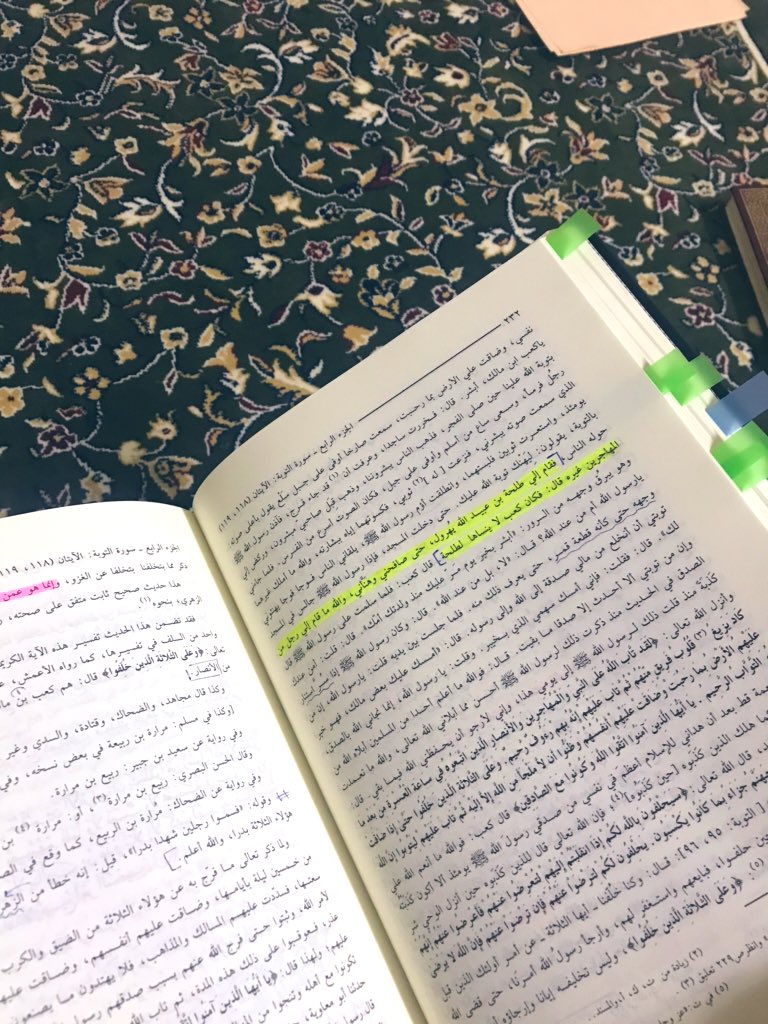 ٢٣٢ الجزء الرابع - سورة التوبة: الآيتان (١١٨، ١١٩)
نفسي، وضاقت علي الأرض بما رحبت، سمعت صارخا أوفى على جبل سلع يقول بأعلى صوته:
ياكعب ابن مالك، أبشر. قال: فخررت ساجدا، وعرفت أن (١) جاء فرج، فآذن رسول الله ﷺ
بتوبة الله علينا حين صلى الفجر، فذهب الناس يبشروننا، وذهب قبل صاحبي مبشرون، وركض إلي
رجل فرسا، وسعى ساع من أسلم وأوفى على جبل، فكان الصوت أسرع من الفرس. فلما جاءني
الذي سمعت صوته يبشرني، فنزعت [له] (٢) ثوبي، فكسوتهما إياه ببشارته، والله ما أملك غيرهما
يومئذ، واستعرت ثوبين فلبستهما، وانطلقت أؤم رسول الله ﷺ يلقاني الناس فوجا فوجا يهنئوني
بالتوبة، يقولون: ليهنك توبة الله عليك. حتى دخلت المسجد، فإذا رسول الله ﷺ جالس في المسجد
حوله الناس، فقام إلي طلحة بن عبيد الله يهرول، حتى صافحني وهنأني، والله ما قام إلي رجل من
المهاجرين غيره قال: فكان كعب لا ينساها لطلحة قال كعب: فلما سلمت على رسول الله ﷺ قال
وهو يبرق وجهه من السرور: «أبشر بخير يوم مر عليك منذ ولدتك أمك». قال: قلت: أمن عندك
يارسول الله أم من عند الله؟ قال: «لا، بل من عند الله». قال: وكان رسول الله ﷺ إذا سر استنار
وجهه حتى كأنه قطعة قمر، حتى يعرف ذلك منه. فلما جلست بين يديه قلت: يارسول الله، إن من
توبتي أن أنخلع من مالي صدقة إلى الله وإلى رسوله. قال: «أمسك عليك بعض مالك، فهو خير
لك». قال: فقلت: فإني أمسك سهمي الذي بخيبر. وقلت: يا رسول الله، إنما نجاني الله بالصدق،
وإن من توبتي ألا أحدث إلا صدقا ما بقيت. قال: فوالله ما أعلم أحدا من المسلمين أبلاه الله من
الصدق في الحديث منذ ذكرت ذلك لرسول الله ﷺ أحسن مما أبلاني الله تعالى، والله ما تعمدت
كذبة منذ قلت ذلك لرسول الله ﷺ إلى يومي هذا، وإني لأرجو أن يحفظني الله فيما بقي. قال:
وأنزل الله تعالى: ﴿لقد تاب الله على النبي والمهاجرين والأنصار الذين اتبعوه في ساعة العسرة من بعد ما
كاد تزيغ (٣) قلوب فريق منهم ثم تاب عليهم إنه بهم رءوف رحيم. وعلى الثلاثة الذين خلفوا حتى إذا ضاقت
عليهم الأرض بما رحبت وضاقت عليهم أنفسهم وظنوا أن لا ملجأ من الله إلا إليه ثم تاب عليهم ليتوبوا إن الله
التواب الرحيم. يا أيها الذين آمنوا اتقوا الله وكونوا مع الصادقين﴾ قال كعب: فوالله ما أنعم الله علي
قط بعد أن هداني للإسلام أعظم في نفسي من صدقي رسول الله ﷺ يومئذ ألا أكون كذبته
هلك الذين كذبوه [حين كذبوه] (٤)، فإن الله تعالى قال للذين كذبوه حين أنزل الوحي شر
قال الله تعالى: ﴿سيحلفون بالله لكم إذا انقلبتم إليهم لتعرضوا عنهم فأعرضوا عنهم إنهم
جهنم جزاء بما كانوا يكسبون. يحلفون لكم لترضوا عنهم فإن ترضوا عنهم فإن الله لا يرضى
[التوبة: ٩٥، ٩٦]. قال: وكنا خلفنا - أيها الثلاثة - عن أمر أولئك الذين قبل
حين حلفوا، فبايعهم واستغفر لهم، وأرجأ رسول الله أمرنا، حتى قضى الله
(٥): ﴿وعلى الثلاثة الذين خلفوا﴾، وليس تخليفه إيانا وإرجاؤه
(٢) زيادة من ت، ك، أ، والمسند.
الجزء الرابع - سورة التوبة: الآيتان (١١٨، ١١٩
ذكر مما خلفنا بتخلفنا عن الغزو، وإنما هو عمن
هذا حديث صحيح ثابت متفق على صحته،
الزهري، بنحوه (١).
فقد تضمن هذا الحديث تفسير هذه الآية الكريم
واحد من السلف في تفسيرها، كما رواه الأعمش،
تعالى: ﴿وعلى الثلاثة الذين خلفوا﴾ قال: هم كعب بن
من الأنصار.
وكذا قال مجاهد، والضحاك، وقتادة، والسدي وغير
[وكذا في مسلم: مرارة بن ربيعة في بعض نسخه، وفي
وفي رواية عن سعيد بن جبير: ربيع بن مرارة.
وقال الحسن البصري: ربيع بن مرارة (٣)، أو: مرارة (٤) بن
وفي رواية عن الضحاك: مرارة بن الربيع، كما وقع في
وقوله: «فسموا رجلين شهدا بدرا»، قيل: إنه خطأ من الزهري
هؤلاء الثلاثة بدرا، والله أعلم.
ولما ذكر تعالى ما فرج به عن هؤلاء الثلاثة من الضيق والكرب
من خمسين ليلة بأيامها، وضاقت عليهم أنفسهم، وضاقت عليهم
سعتها، فسددت عليهم المسالك والمذاهب، فلا يهتدون ما يصنعون
لأمر الله، وثبتوا حتى فرج الله عنهم بسبب صدقهم رسول
عذر، فعوقبوا على ذلك هذه المدة، ثم تاب الله
عليهم؛ ولهذا قال: ﴿يا أيها الذين آمنوا
تكونوا مع أهله وتنجوا من
حدثنا أبو معاوية،
قال رسول